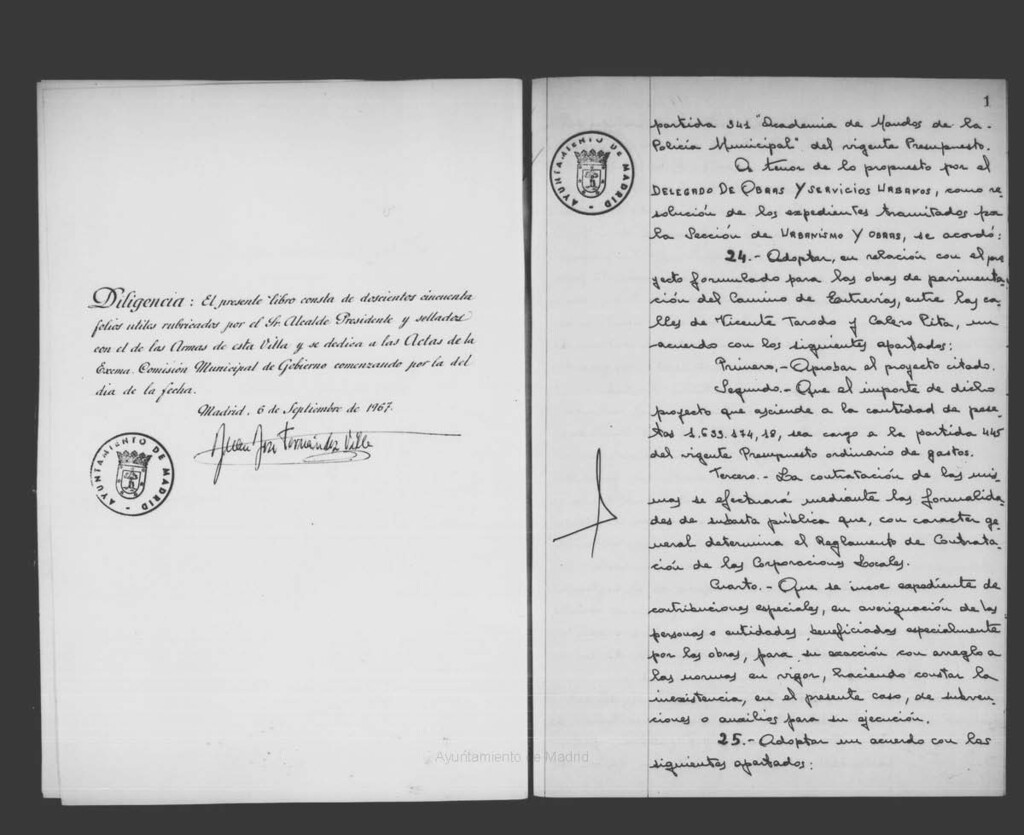 Diligencia: El presente libro consta de doscientos cincuenta
folios utiles rubricados por el Sr. Alcalde Presidente y sellados
con el de las Armas de esta Villa y se dedica a las Actas de la
Excma. Comisión Municipal de Gobierno comenzando por la del
día de la fecha.
Madrid, 6 de Septiembre de 1967.
Juan José Fernández Villa
AYUNTAMIENTO DE MADRID
1
AYUNTAMIENTO DE MADRID
partida 341 "Academia de Mandos de la
Policía Municipal" del vigente Presupuesto.
A tenor de lo propuesto por el
DELEGADO DE OBRAS Y SERVICIOS URBANOS, como re
solución de los expedientes tramitados por
la Sección de URBANISMO Y OBRAS, se acordó:
24.- Adoptar, en relación con el pro
yecto formulado para las obras de pavimenta
ción del Camino de Entrevías, entre las ca
lles de Vicente Tarodo y Calero Pita, un
acuerdo con los siguientes apartados:
Primero.- Aprobar el proyecto citado.
Segundo.- Que el importe de dicho
proyecto que asciende a la cantidad de pese
tas 1.639.174,18, sea cargo a la partida 445
del vigente Presupuesto ordinario de gastos.
Tercero.- La contratación de las mis
mas se efectuará mediante las formalida
des de subasta pública que, con caracter ge
neral determina el Reglamento de Contrata
ción de las Corporaciones Locales.
Cuarto.- Que se incoe expediente de
contribuciones especiales, en averiguación de las
personas o entidades beneficiadas especialmente
por las obras, para su exacción con arreglo a
las normas en vigor, haciendo constar la
inexistencia, en el presente caso, de subven
ciones o auxilios para su ejecución.
25.- Adoptar un acuerdo con los
siguientes apartados:
Ayuntamiento de Madrid